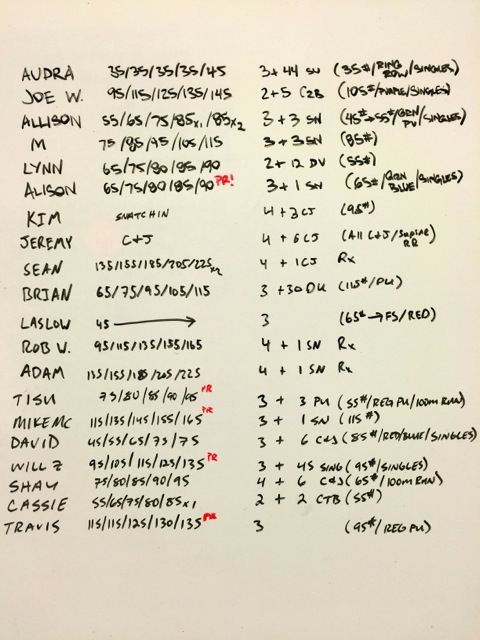 AUDRA 35/35/35/35/45 3+44 SN (35#/RING ROW/SINGLES)
JOE W. 95/115/125/135/145 2+5 C2B (105#/PURPLE/SINGLES)
ALLISON 55/65/75/85x1/85x2 3+3 SN (45#→55#/GRN PU/SINGLES)
M 75/85/95/105/115 3+3 SN (85#)
LYNN 65/75/80/85/90 2+12 DU (55#)
ALISON 65/75/80/85/90 PR! 3+1 SN (65#/GRN BLUE/SINGLES)
KIM SNATCHIN 4+3 CJ (95#)
JEREMY C+J 4+6 CJ (All C+J/SUPINE RR)
SEAN 135/155/185/205/225x2 4+1 CJ Rx
BRIAN 65/75/95/105/115 3+30 DU (115#/PU)
LASLOW 45 → 3 (65#→FS/RED)
ROB W. 95/115/135/155/165 4+1 SN Rx
ADAM 135/155/185/205/225 4+1 SN Rx
TISH 75/80/85/90/95 PR 3+3 PU (55#/REG PU/100m RUN)
MIKE MC 115/135/145/155/165 PR 3+1 SN (115#)
DAVID 45/55/65/75/75 3+6 C&J (85#/RED/BLUE/SINGLES)
WILL Z 95/105/115/125/135 PR 3+45 SING (95#/SINGLES)
SHAY 75/80/85/90/95 4+6 C&J (65#/100m RUN)
CASSIE 55/65/75/80/85x1 2+2 CTB (55#)
TRAVIS 115/115/125/130/135 PR 3 (95#/REG PU)